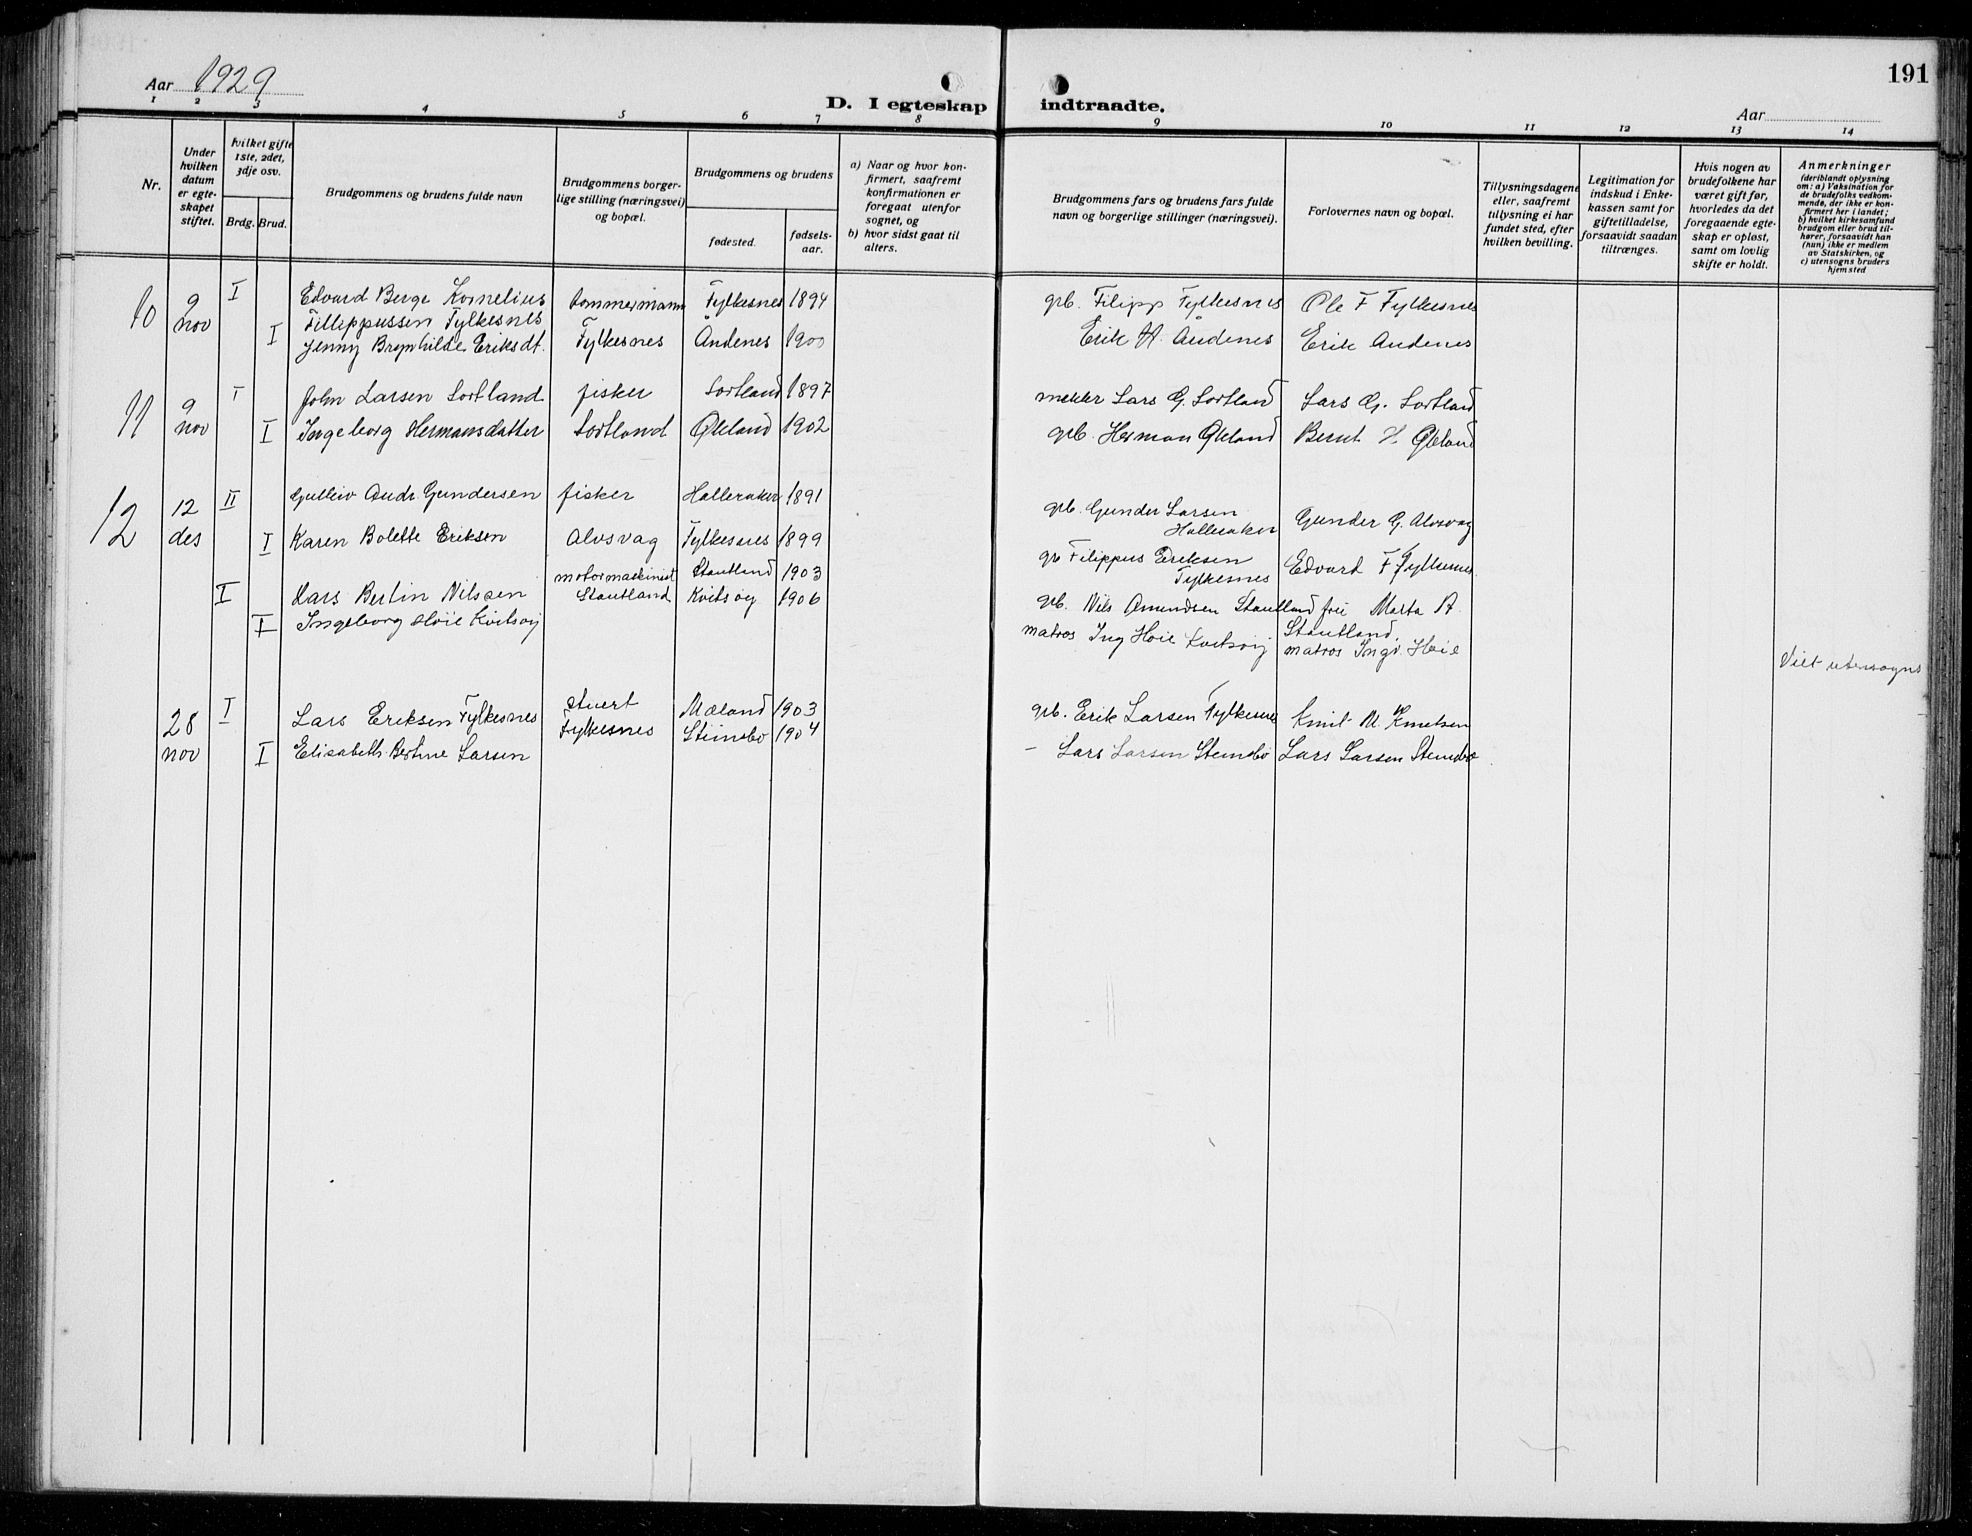 Aar 1929
D. I egteskap indtraadte.
Aar
191
1 2 3 4 5 6 7 8 9 10 11 12 13 14
Nr.
Under hvilken datum er egteskapet stiftet.
hvilket gifte 1ste, 2det, 3dje osv.
Brdg. Brud.
Brudgommens og brudens fulde navn
Brudgommens borger-
lige stilling (næringsvei)
og bopæl.
Brudgommens og brudens
fødested.
fødsels-
aar.
a) Naar og hvor kon-
firmert, saafremt
konfirmationen er
foregaat utenfor
sognet, og
b) hvor sidst gaat til
alters.
Brudgommens fars og brudens fars fulde
navn og borgerlige stillinger (næringsvei).
Forlovernes navn og bopæl.
Tillysningsdagene
eller, saafremt
tillysning ei har
fundet sted, efter
hvilken bevilling.
Legitimation for
indskud i Enke-
kassen samt for
giftetilladelse,
forsaavidt saadan
tiltrænges.
Hvis nogen av
brudefolkene har
været gift før,
hvorledes da det
foregaaende egte-
skap er opløst,
samt om lovlig
skifte er holdt.
Anmerkninger
(deriblandt oplysning
om: a) Vaksination for
de brudefolks vedkom-
mende, der ikke er kon-
firmert her i landet;
b) hvilket kirkesamfund
brudgom eller brud til-
hører, forsaavidt han
(hun) ikke er medlem
av Statskirken, og
c) utensogns bruders
hjemsted
10 9 nov I Edvard Berge Kornelius tømmermann Fylkesnes 1894 grb. Filipp Fylkesnes Ole F Fylkesnes
Fillippussen Fylkesnes
I Jenny Brynhilde Eriksdt. Fylkesnes Andenes 1900 Erik H. Audenes Erik Audenes
11 9 nov I John Larsen Sortland fisker Sortland 1897 Lars G. Sortland Lars G. Sortland
I Ingeborg Hermansdatter Sortland Økland 1902 grb. Herman Økland Bernt H. Økland
12 12 des II Gulleiv Andr. Gundersen fisker Halleraker 1891 grb. Gunder Larsen Halleraker Gunder G. Alvsvag
I Karen Bolette Eriksen Alvsvag Fylkesnes 1899 gr Filippus Eriksen Fylkesnes Edvard F Fylkesnes
I Lars Bertin Nilssen motormaskinist Stautland 1903 grb. Nils Amundsen Stautland frü Marta A. Stautland.
I Ingeborg Høie Kvitsøy Stautland Kvitsøy 1906 matros Ing Høie Kvitsøy matros Ingv. Høie
Viet utensogns
28 nov I Lars Eriksen Fylkesnes stuert Mæland 1903 grb. Erik Larsen Fylkesnes Knut M. Knutsen
I Elisabeth Bertine Larsen Fylkesnes Steinsbø 1904 – Lars Larsen Steinsbø Lars Larsen Steinsbø